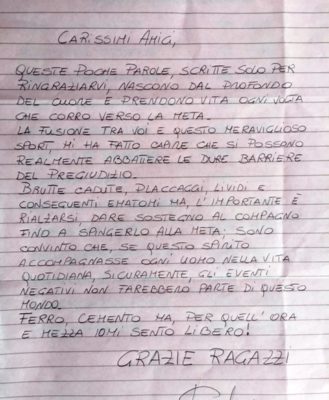 CARISSIMI AMICI,
QUESTE POCHE PAROLE, SCRITTE SOLO PER
RINGRAZIARVI, NASCONO DAL PROFONDO
DEL CUORE E PRENDONO VITA OGNI VOLTA
CHE CORRO VERSO LA META.
LA FUSIONE TRA VOI E QUESTO MERAVIGLIOSO
SPORT, MI HA FATTO CAPIRE CHE SI POSSONO
REALMENTE ABBATTERE LE DURE BARRIERE
DEL PREGIUDIZIO.
BRUTTE CADUTE, PLACCAGGI, LIVIDI E
CONSEGUENTI EMATOMI MA, L'IMPORTANTE È
RIALZARSI DARE SOSTEGNO AL COMPAGNO
FINO A SPINGERLO ALLA META; SONO
CONVINTO CHE, SE QUESTO SPIRITO
ACCOMPAGNASSE OGNI UOMO NELLA VITA
QUOTIDIANA, SICURAMENTE, GLI EVENTI
NEGATIVI NON FAREBBERO PARTE DI QUESTO
MONDO.
FERRO, CEMENTO MA, PER QUELL'ORA
E MEZZA IO MI SENTO LIBERO!
GRAZIE RAGAZZI